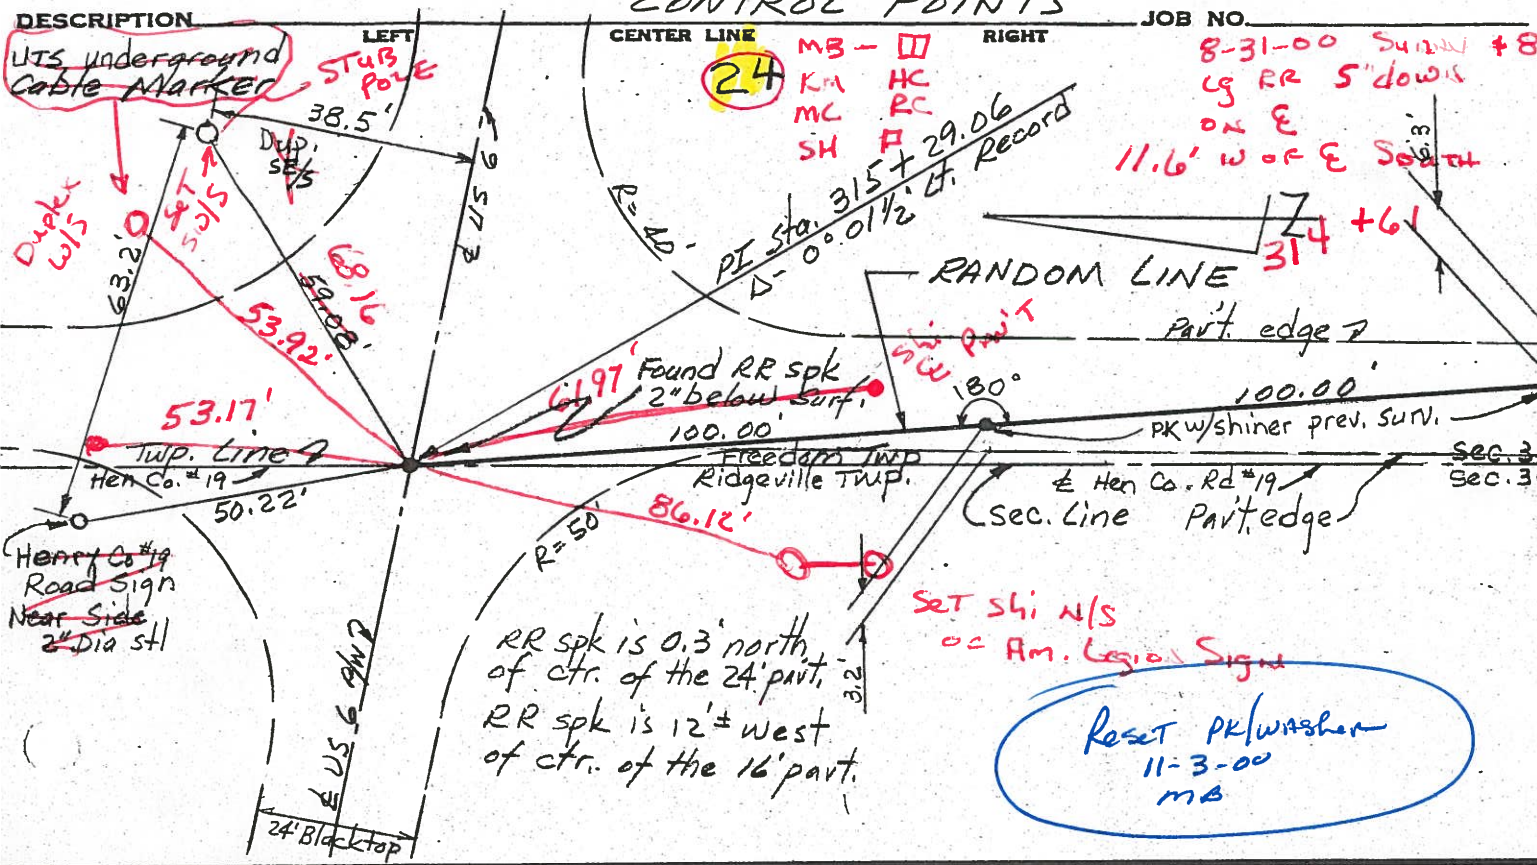 CONTROL POINTS
DESCRIPTION
JOB NO.
LEFT
CENTER LINE
RIGHT
UTS underground
Cable Marker
STUB
POLE
24
MB -
KM HC
MC RC
SH
8-31-00
lg RR 5" down
ON ℄
11.6' W OF ℄ SOUTH
38.5'
Dup.
SE/S
SET
SW/S
Duplex
W/S
63.2'
68.16
59.08'
53.92'
℄ US 6
R=40'
PI Sta. 315+29.06
D- 0°.01 1/2' Lt. Record
314 +61
RANDOM LINE
Pav't. edge
Shi
PAV'T
61.97'
Found RR spk
2" below Surf.
180°
100.00'
100.00'
PK w/shiner prev. surv.
53.17'
Twp. Line
Hen Co. #19
50.22'
Freedom Twp
Ridgeville Twp.
℄ Hen Co. Rd #19
Sec. 3
Sec. 3
Sec. Line
Pav't. edge
86.12'
R=50'
Henry Co #19
Road Sign
Near Side
2" Dia stl
SET Shi N/S
OF Am. Legion Sign
RR spk is 0.3' north
of ctr. of the 24' pav't.
RR spk is 12'± west
of ctr. of the 16' pav't.
3.2'
℄ US 6 R/W
24' Blacktop
Reset PK/washer
11-3-00
MB